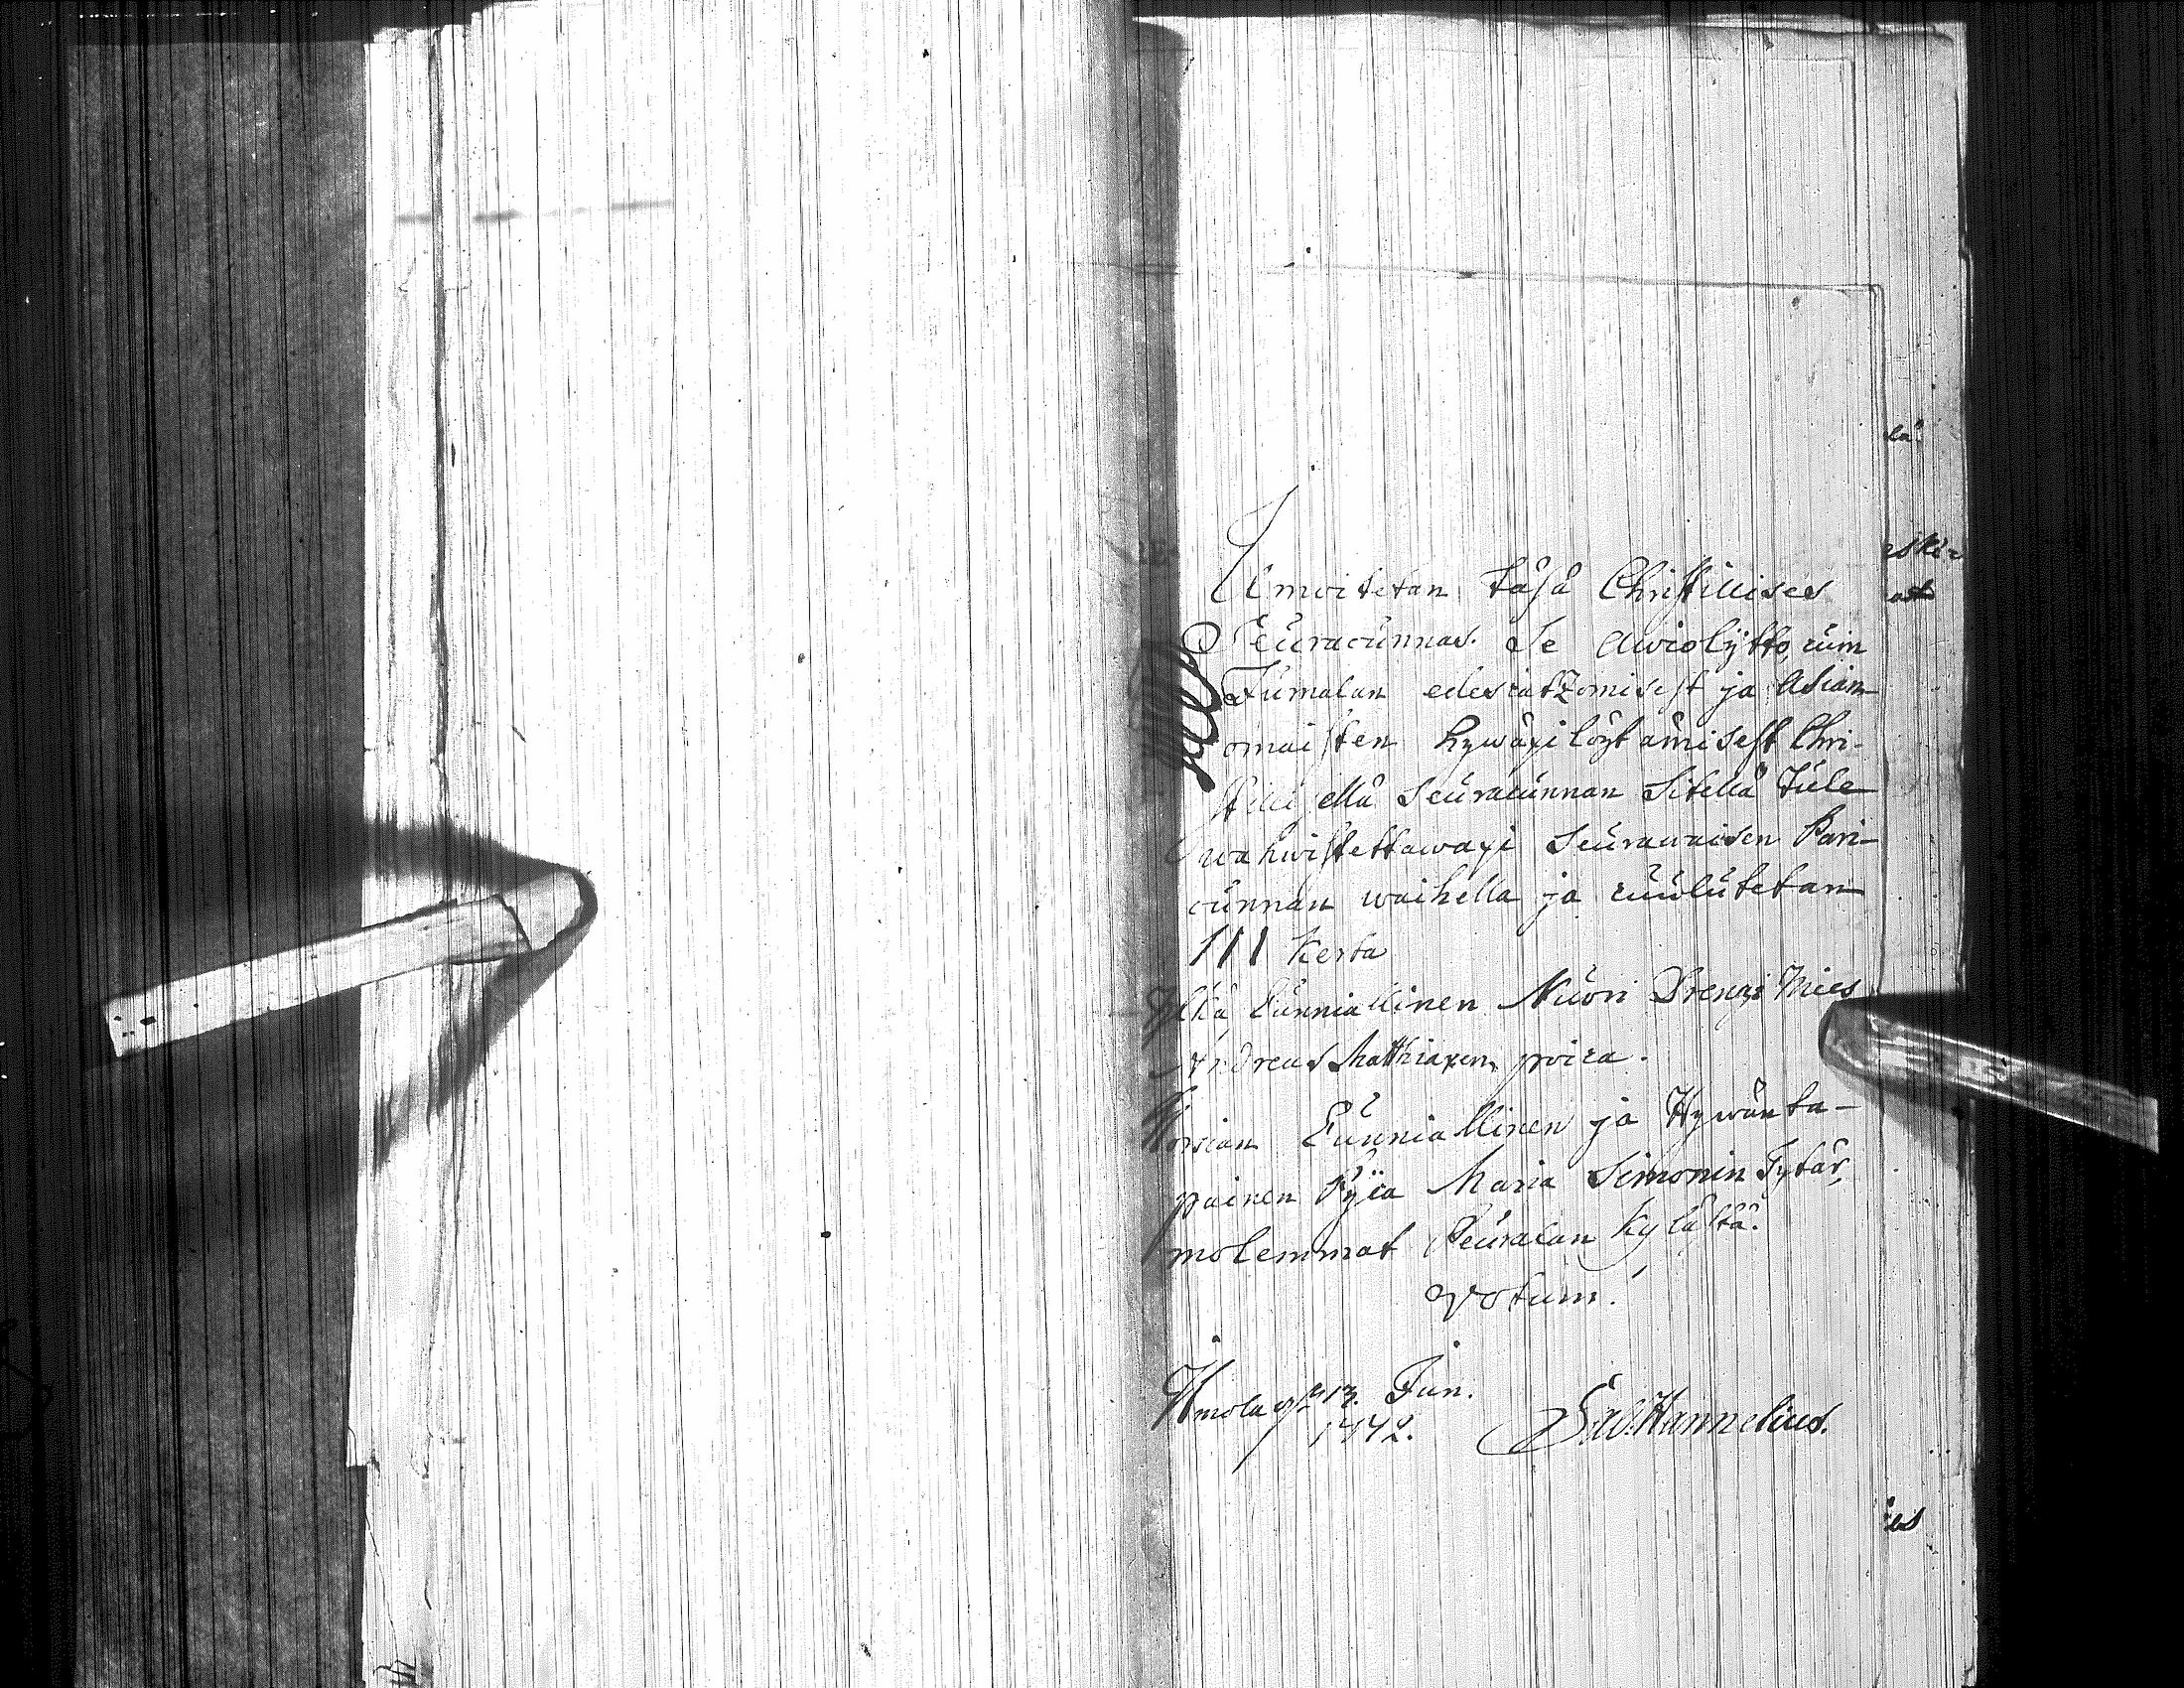 Ilmoitetan täsä Christillises
Seuracunnas. Se Awioliitto, cuin
Jumalan edescatzomisest ja Asian-
omaisten hywäxi löytämisest Chri-
stillisellä Seuracunnan Sitellä tule
wahwistettawaxi Seurawaisen Pari-
cunnan waihella ja cuulutetan
III Kerta
Ylkä Cunniallinen Nuori Drengi Mies
Andreas Matthiaxen poica.
Morsian Cunniallinen ja Hywänta-
painen Pijca Maria Simonin Tytär,
molemmat Peuralan Kylästä.
Votum!
13. Jun.
1742.
Hannelius.